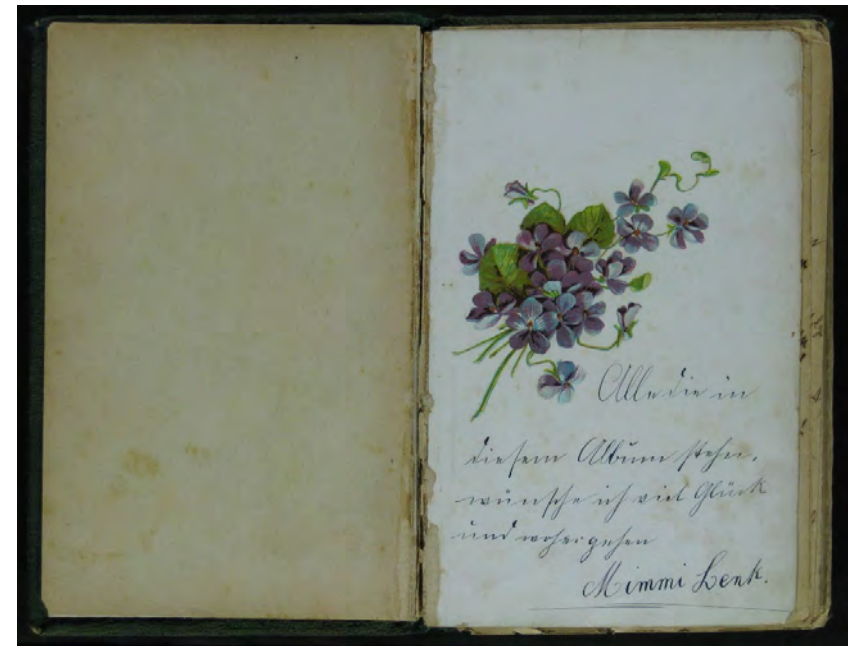 Alle die in
diesem Album stehen,
wünsche ich viel Glück
und wohergehen
Mimmi Lenk.